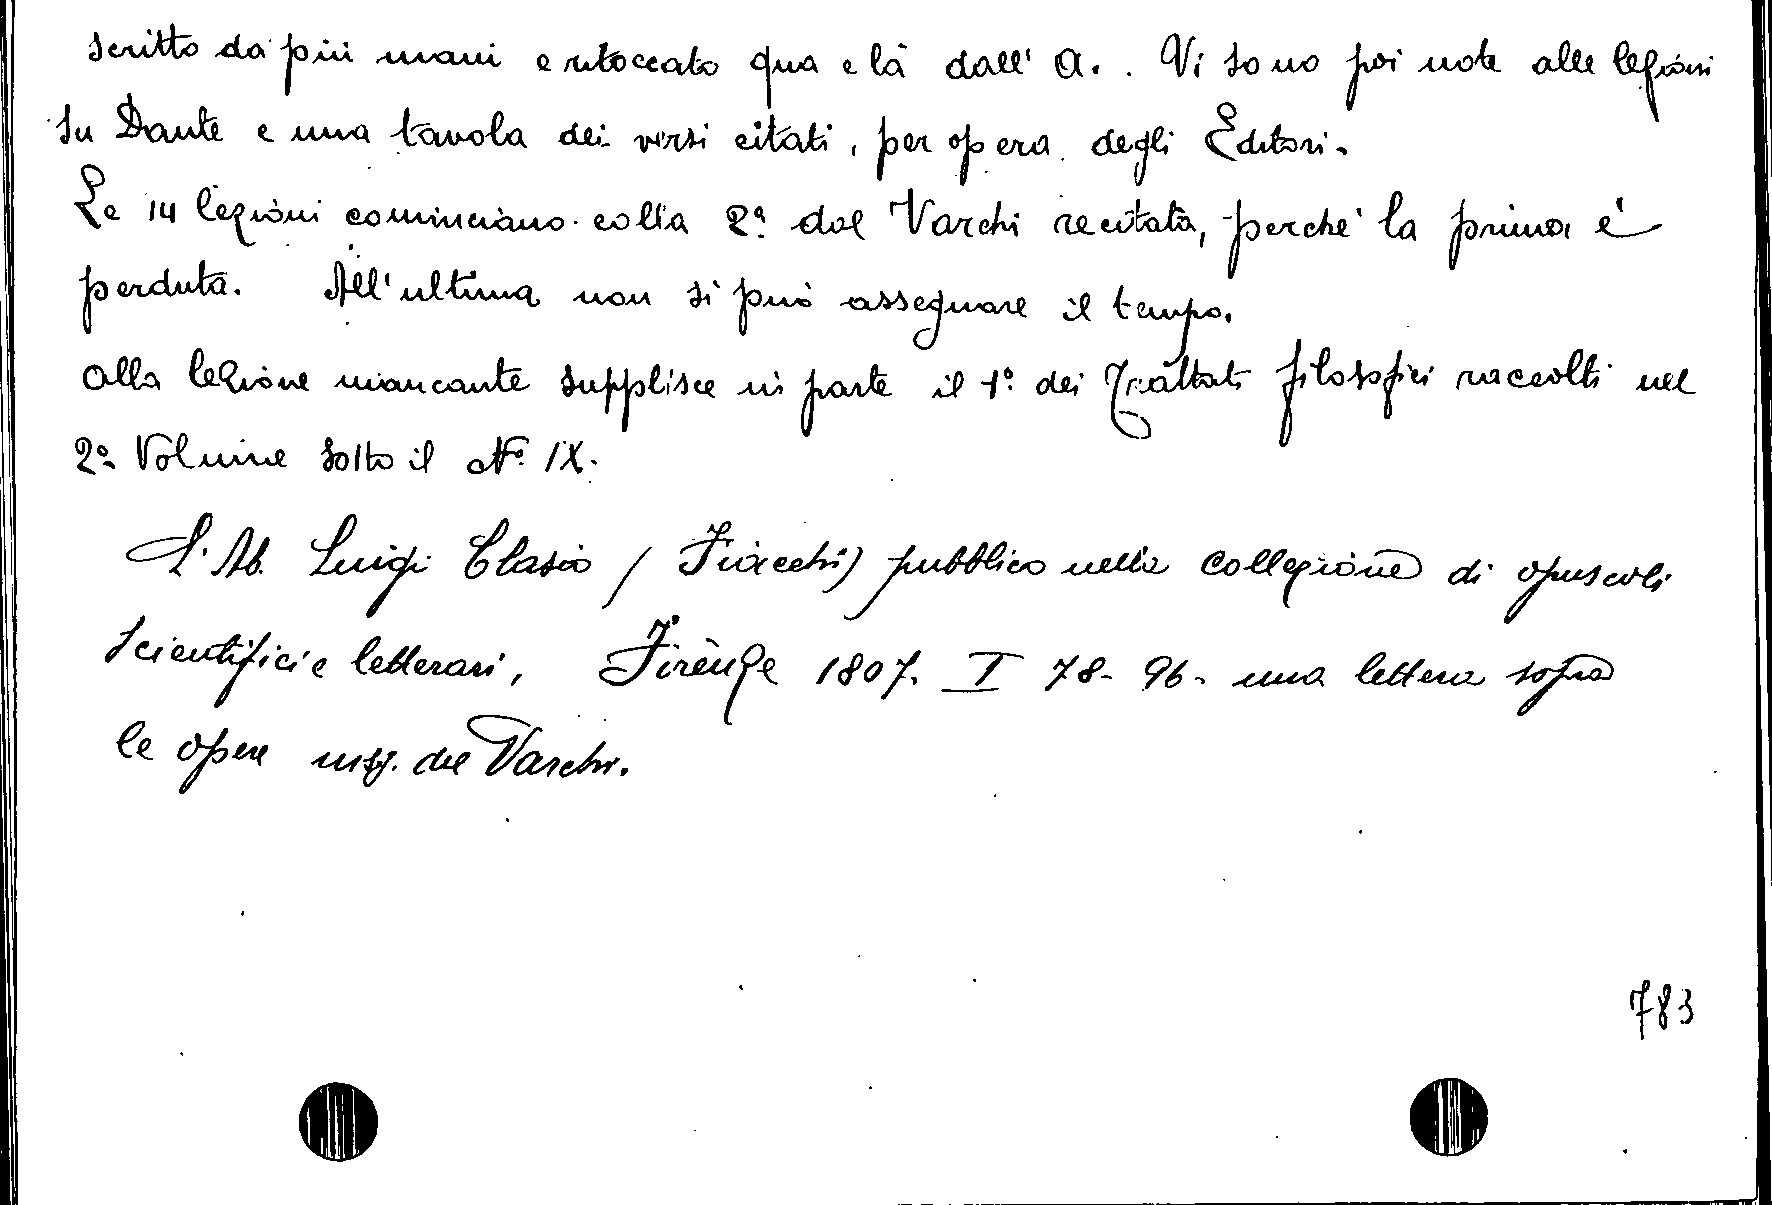 scritto da più mani e ritoccato qua e là dall' A.. Vi sono poi note alle lezioni
su Dante e una tavola dei versi citati, per opera degli Editori.
Le 14 lezioni cominciano colla 2ª dal Varchi recitata, perchè la prima è
perduta. All'ultima non si può assegnare il tempo.
Alla lezione mancante supplisce in parte il 1º dei Trattati filosofici raccolti nel
2º Volume sotto il Nº IX.
L'Ab. Luigi Clasio (Fiacchi) pubblicò nella Collezione di opuscoli
scientifici e letterari, Firenze 1807. I 78-96- una lettera sopra
le opere msg. del Varchi.
783